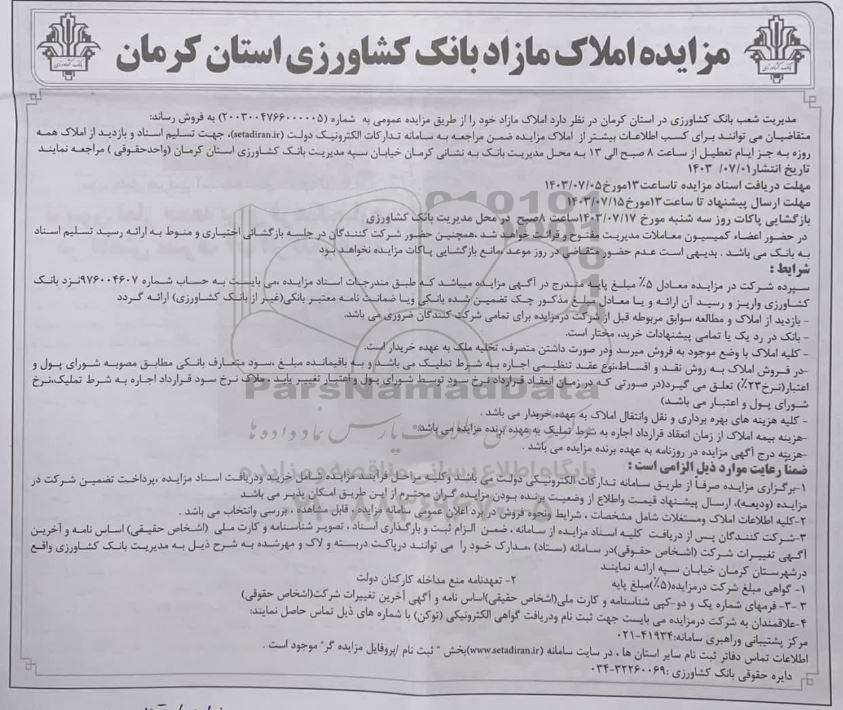 مزایده املاک مازاد بانک کشاورزی استان کرمان
مدیریت شعب بانک کشاورزی در استان کرمان در نظر دارد املاک مازاد خود را از طریق مزایده عمومی به شماره (۲۰۰۳۰۰۴۷۶۶۰۰۰۰۰۵) به فروش رساند:
متقاضیان می توانند برای کسب اطلاعات بیشتر از املاک مزایده ضمن مراجعه به سامانه تدارکات الکترونیک دولت (setadiran.ir)، جهت تسلیم اسناد و بازدید از املاک همه
روزه به جز ایام تعطیل از ساعت ۸ صبح الی ۱۳ به محل مدیریت بانک به نشانی کرمان خیابان سپه مدیریت بانک کشاورزی استان کرمان (واحدحقوقی ) مراجعه نمایند
تاریخ انتشار۰۷/۰۱/ ۱۴۰۳
مهلت دریافت اسناد مزایده تاساعت۱۳مورخ۱۴۰۳/۰۷/۰۵
مهلت ارسال پیشنهاد تا ساعت۱۳مورخ۱۴۰۳/۰۷/۱۵
بازگشایی پاکات روز سه شنبه مورخ ۱۴۰۳/۰۷/۱۷ساعت ۸صبح در محل مدیریت بانک کشاورزی
در حضور اعضاء کمیسیون معاملات مدیریت مفتوح و قرائت خواهد شد ،همچنین حضور شرکت کنندگان در جلسه بازگشائی اختیاری و منوط به ارائه رسید تسلیم اسناد
به بانک می باشد . بدیهی است عدم حضور متقاضی در روز موعد ،مانع بازگشایی پاکات مزایده نخواهد بود
شرایط :
سپرده شرکت در مزایده معادل ۵٪ مبلغ پایه مندرج در آگهی مزایده میباشد که طبق مندرجات اسناد مزایده ،می بایست به حساب شماره ۹۷۶۰۰۴۶۰۷نزد بانک
کشاورزی واریز و رسید آن ارائه و یا معادل مبلغ مذکور چک تضمین شده بانکی ویا ضمانت نامه معتبر بانکی(غیر از بانک کشاورزی) ارائه گردد
- بازدید از املاک و مطالعه سوابق مربوطه قبل از شرکت درمزایده برای تمامی شرکت کنندگان ضروری می باشد.
- بانک در رد یک یا تمامی پیشنهادات خرید، مختار است.
- کلیه املاک با وضع موجود به فروش میرسد ودر صورت داشتن متصرف، تخلیه ملک به عهده خریدار است.
-در فروش املاک به روش نقد و اقساط،نوع عقد تنظیمی اجاره به شرط تملیک می باشد و به باقیمانده مبلغ ،سود متعارف بانکی مطابق مصوبه شورای پول و
اعتبار(نرخ۲۳٪) تعلق می گیرد(در صورتی که در زمان انعقاد قرارداد نرخ سود توسط شورای پول و اعتبار تغییر یابد ، ملاک نرخ سود قرارداد اجاره به شرط تملیک،نرخ
شورای پول و اعتبار می باشد)
- کلیه هزینه های بهره برداری و نقل وانتقال املاک به عهده خریدار می باشد .
-هزینه بیمه املاک از زمان انعقاد قرارداد اجاره به شرط تملیک به عهده برنده مزایده می باشد.
-هزینه درج آگهی مزایده در روزنامه به عهده برنده مزایده می باشد .
ضمنا رعایت موارد ذیل الزامی است :
۱-برگزاری مزایده صرفا از طریق سامانه تدارکات الکترونیکی دولت می باشد وکلیه مراحل فرآیند مزایده شامل خرید ودریافت اسناد مزایده ،پرداخت تضمین شرکت در
مزایده (ودیعه)، ارسال پیشنهاد قیمت واطلاع از وضعیت برنده بودن مزایده گران محترم از این طریق امکان پذیر می باشد
۲-کلیه اطلاعات املاک ومستغلات شامل مشخصات ، شرایط ونحوه فروش در برد اعلان عمومی سامانه مزایده ، قابل مشاهده ، بررسی وانتخاب می باشد .
۳-شرکت کنندگان پس از دریافت کلیه اسناد مزایده از سامانه ، ضمن الزام ثبت و بارگذاری اسناد ، تصویر شناسنامه و کارت ملی (اشخاص حقیقی) اساس نامه و آخرین
آگهی تغییرات شرکت (اشخاص حقوقی)در سامانه (ستاد) ،مدارک خود را می توانند درپاکت دربسته و لاک و مهرشده به شرح ذیل به مدیریت بانک کشاورزی واقع
درشهرستان کرمان خیابان سپه ارائه نمایند
۱- گواهی مبلغ شرکت درمزایده(۵٪)مبلغ پایه ۲- تعهدنامه منع مداخله کارکنان دولت
۳ -۳- فرمهای شماره یک و دو-کپی شناسنامه و کارت ملی(اشخاص حقیقی)اساس نامه و آگهی آخرین تغییرات شرکت(اشخاص حقوقی)
۴-علاقمندان به شرکت درمزایده می بایست جهت ثبت نام ودریافت گواهی الکترونیکی (توکن) با شماره های ذیل تماس حاصل نمایند:
مرکز پشتیبانی وراهبری سامانه:۴۱۹۳۴-۰۲۱
اطلاعات تماس دفاتر ثبت نام سایر استان ها ، در سایت سامانه (www.setadiran.ir)بخش " ثبت نام /پروفایل مزایده گر" موجود است .
دایره حقوقی بانک کشاورزی :۳۲۲۶۰۰۶۹-۰۳۴
ParsNamadData
پایگاه اطلاع رسانی مناقصه و مزایده